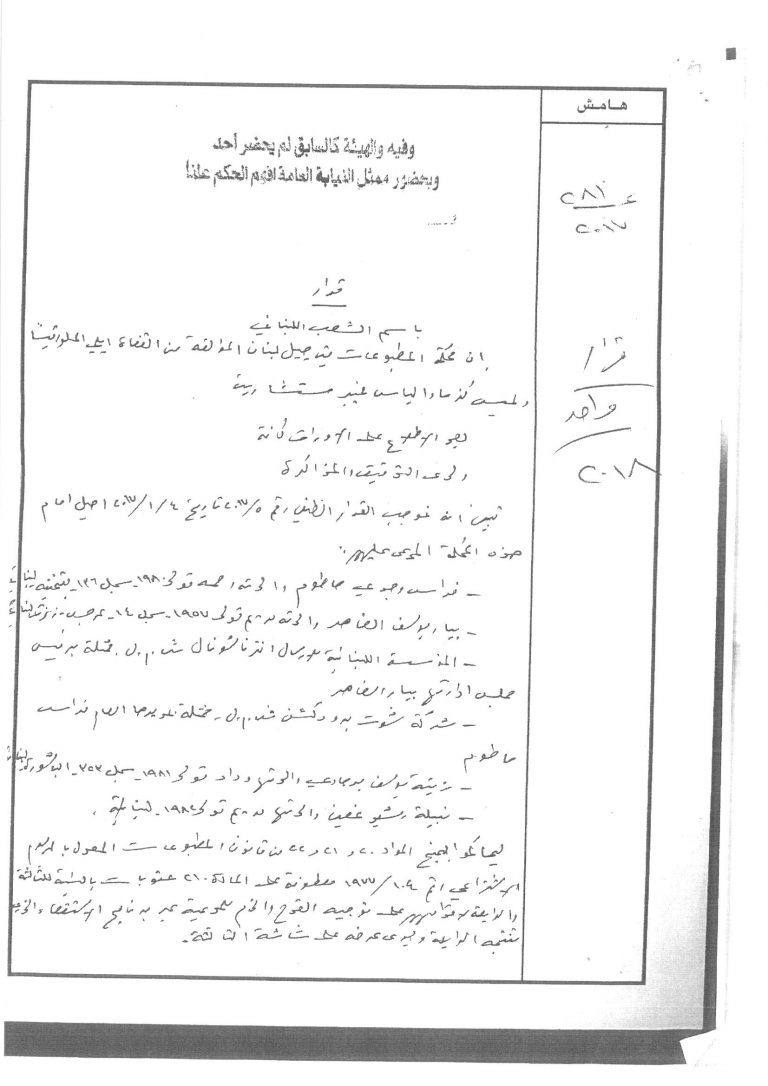 هامش
وفيه والهيئة كالسابق لم يحضر أحد
وبحضور ممثل النيابة العامة افهم الحكم علناً
٢٨١
٢٠١٧
قرار
باسم الشعب اللبناني
ان محكمة المطبوعات في جبل لبنان المؤلفة من القضاة ايلي الحلو رئيساً
والياس مستشارين
قرار
واحد
٢٠١٨
بعد الاطلاع على الاوراق كافة
ولدى التدقيق والمذاكرة
تبين انه بموجب القرار الظني رقم ٢٠١٧/٥ تاريخ ٢٠١٧/١/٤ احيل امام
هذه المحكمة المدعى عليهم:
- فراس وجودي حاطوم والدته تولد ١٩٨٠ سجل ١٣٦
- بيار يوسف الضاهر والدته مريم تولد ١٩٥٧ سجل ١٤
- المؤسسة اللبنانية للارسال انترناشونال ش.م.ل. ممثلة برئيس
مجلس ادارتها بيار الضاهر
- شركة شوت برودكشن ش.م.ل. ممثلة بمديرها العام فراس
حاطوم
- يوسف والدتها وداد تولد ١٩٨١ سجل ٣٥٣
- نبيلة غصين والدتها مريم تولد ١٩٨٤ لبنانية.
ليحاكموا بجنح المواد ٢٠ و ٢١ و ٢٢ من قانون المطبوعات المعدل بالمرسوم
الاشتراعي رقم ١٩٧٧/١٠٤ معطوفة على المادة ٢١٠ عقوبات بالنسبة للثالثة
والرابعة لاقدامهم على توجيه القدح والذم للمدعية عبر برنامج الاستقصاء الذي
تنتجه الرابعة ويجري عرضه على شاشة الثالثة.